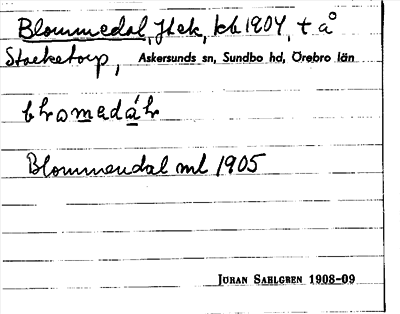 Blommedal, Jtek, kb 1904, t å
Stocketorp, Askersunds sn, Sundbo hd, Örebro län
bɫomedáɫ
Blommendal ml 1905
JOHAN SAHLGREN 1908-09